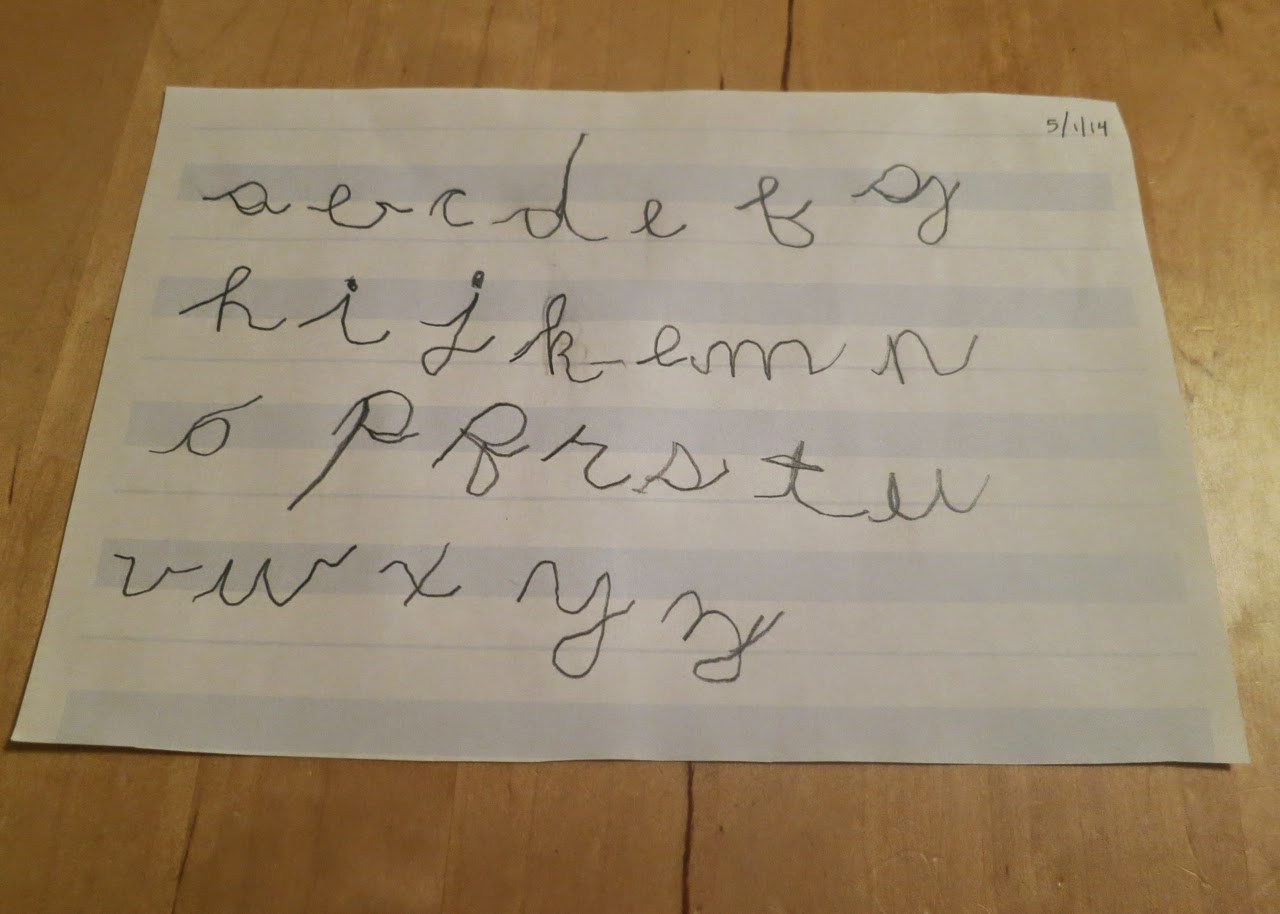 5/1/14
a b c d e f g
h i j k l m n
o p q r s t u
v w x y z